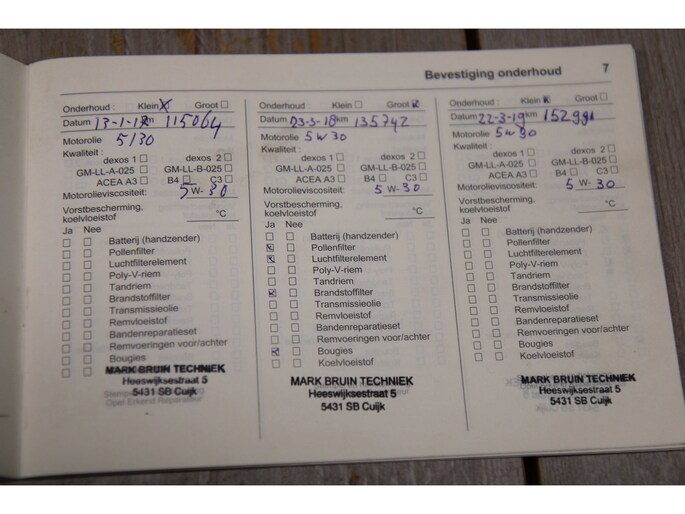 Bevestiging onderhoud 7
Onderhoud : Klein Groot
Datum 13-1-18 km 115064
Motorolie 5/30
Kwaliteit :
dexos 1 dexos 2
GM-LL-A-025 GM-LL-B-025
ACEA A3 B4 C3
Motorolieviscositeit: 5 W- 30
Vorstbescherming,
koelvloeistof °C
Ja Nee
Batterij (handzender)
Pollenfilter
Luchtfilterelement
Poly-V-riem
Tandriem
Brandstoffilter
Transmissieolie
Remvloeistof
Bandenreparatieset
Remvoeringen voor/achter
Bougies
MARK BRUIN TECHNIEK
Heeswijksestraat 5
5431 SB Cuijk
Opel Erkend Reparateur
Onderhoud : Klein Groot
Datum 23-3-18 km 135742
Motorolie 5 W 30
Kwaliteit :
dexos 1 dexos 2
GM-LL-A-025 GM-LL-B-025
ACEA A3 B4 C3
Motorolieviscositeit: 5 W- 30
Vorstbescherming,
koelvloeistof °C
Ja Nee
Batterij (handzender)
Pollenfilter
Luchtfilterelement
Poly-V-riem
Tandriem
Brandstoffilter
Transmissieolie
Remvloeistof
Bandenreparatieset
Remvoeringen voor/achter
Bougies
Koelvloeistof
MARK BRUIN TECHNIEK
Heeswijksestraat 5
5431 SB Cuijk
Onderhoud : Klein Groot
Datum 22-3-19 km
Motorolie 5 W 30
Kwaliteit :
dexos 1 dexos 2
GM-LL-A-025 GM-LL-B-025
ACEA A3 B4 C3
Motorolieviscositeit: 5 W- 30
Vorstbescherming,
koelvloeistof °C
Ja Nee
Batterij (handzender)
Pollenfilter
Luchtfilterelement
Poly-V-riem
Tandriem
Brandstoffilter
Transmissieolie
Remvloeistof
Bandenreparatieset
Remvoeringen voor/achter
Bougies
Koelvloeistof
MARK BRUIN TECHNIEK
Heeswijksestraat 5
5431 SB Cuijk